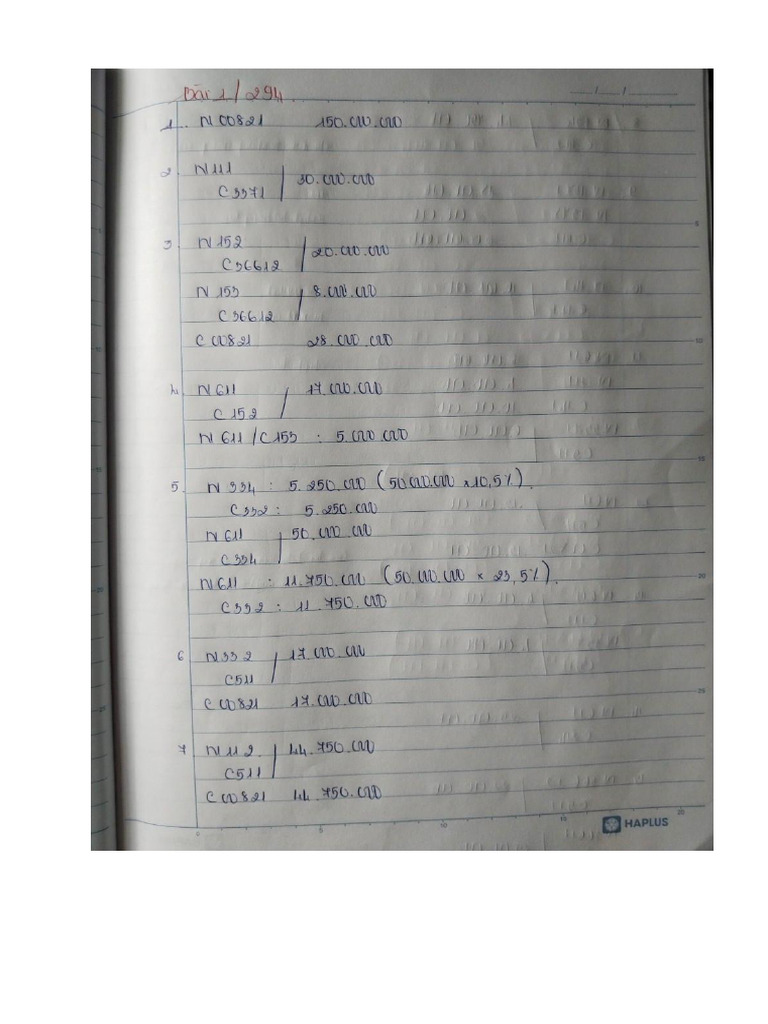 Bài 1/294
1. N 00821 150.000.000
2. N 111
C 3371 30.000.000
3. N 152
C 36612 20.000.000
N 153 8.000.000
C 36612
C 00821 28.000.000
4. N 611 17.000.000
C 152
N 611 / C 153 : 5.000.000
5. N 334 : 5.250.000 (50.000.000 × 10,5%).
C 332 : 5.250.000
N 611 50.000.000
C 334
N 611 : 11.750.000 (50.000.000 × 23,5%).
C 332 : 11.750.000
6 N 332 17.000.000
C 511
C 00821 17.000.000
7 N 112 44.750.000
C 511
C 00821 44.750.000
HAPLUS